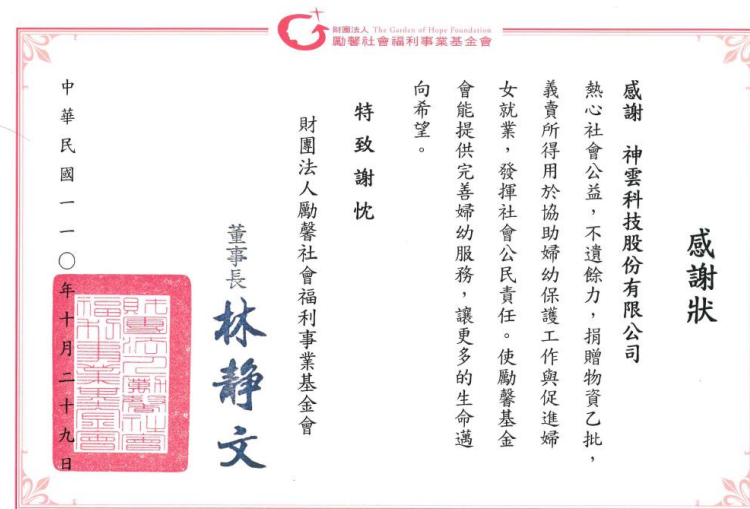 財團法人 The Garden of Hope Foundation
勵馨社會福利事業基金會
感謝狀
感謝 神雲科技股份有限公司
熱心社會公益，不遺餘力，捐贈物資乙批，
義賣所得用於協助婦幼保護工作與促進婦
女就業，發揮社會公民責任。使勵馨基金
會能提供完善婦幼服務，讓更多的生命邁
向希望。
特致謝忱
財團法人勵馨社會福利事業基金會
董事長 林靜文
財團法人勵馨社會福利事業基金會
中華民國一一〇年十月二十九日